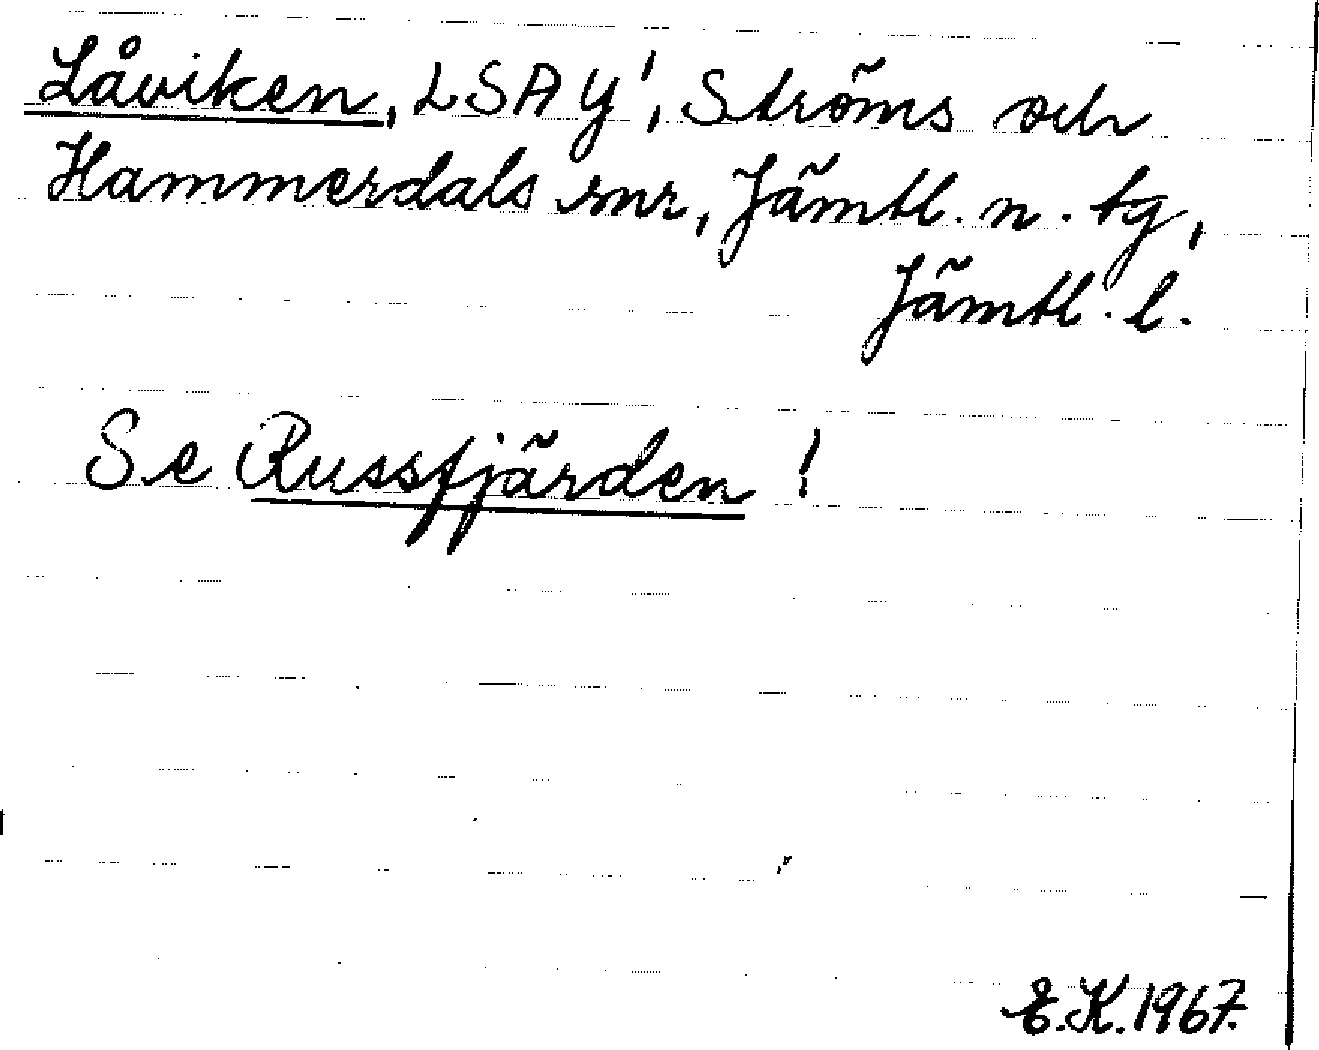 Låviken, LSAY', Ströms och
Hammerdals snr, Jämtl. n. tg,
Jämtl. l.
Se Russfjärden!
E.K. 1967.